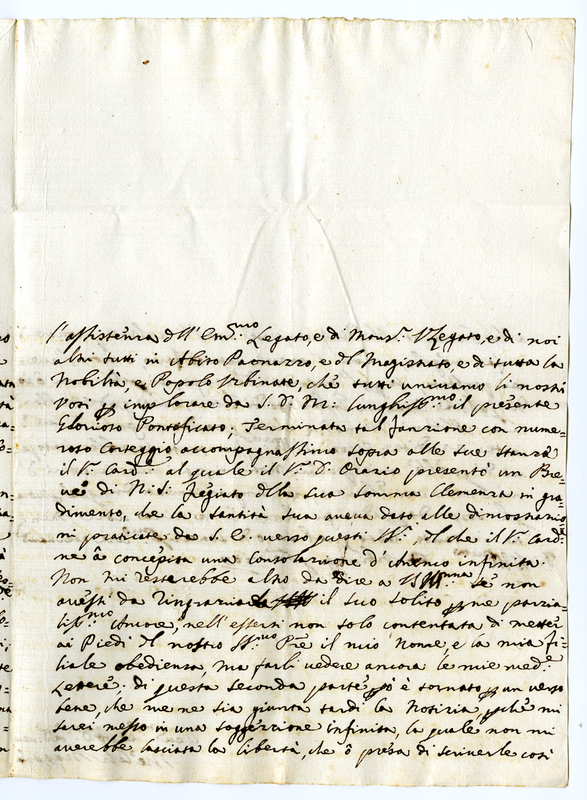 l'assistenza dell'Em.mo Legato, e di Mons.r V.Legato, e di noi
altri tutti in Abito Paonazzo, e del Magistrato, e di tutta la
Nobiltà, e Popolo Urbinate, che tutti univamo li nostri
Voti p implorare da S. D. M: lunghiss.mo il presente
Glorioso Pontificato; Terminata tal funzione con nume-
roso Corteggio accompagnassimo sopra alle sue stanze
il S.r Card.e al quale il S.r D. Orazio presentò un Bre-
ve di N: S: fregiato della sua somma Clemenza in gra-
dimento, che la Santità sua aveva dato alle dimostrazio
ni praticate da S. E. verso questi SS.ri, del che il S.r Card:
ne à concepita una Consolazione d'animo infinita.
Non mi resterebbe altro da dire a se non
avessi da ringraziarla il suo solito parzia-
liss.mo Amore, nell'essersi non solo contentata di metter
ai Piedi del nostro SS.mo Pre il mio Nome, e la mia fi-
liale obedienza, ma farli vedere ancora le mie med.e
Lettere; di questa seconda parte pò è tornato p un verso
bene, che me ne sia giunta tardi la Notizia, pche mi
sarei messo in una soggezzione infinita, la quale non mi
averebbe lasciata la libertà, che ò presa di scriverle così